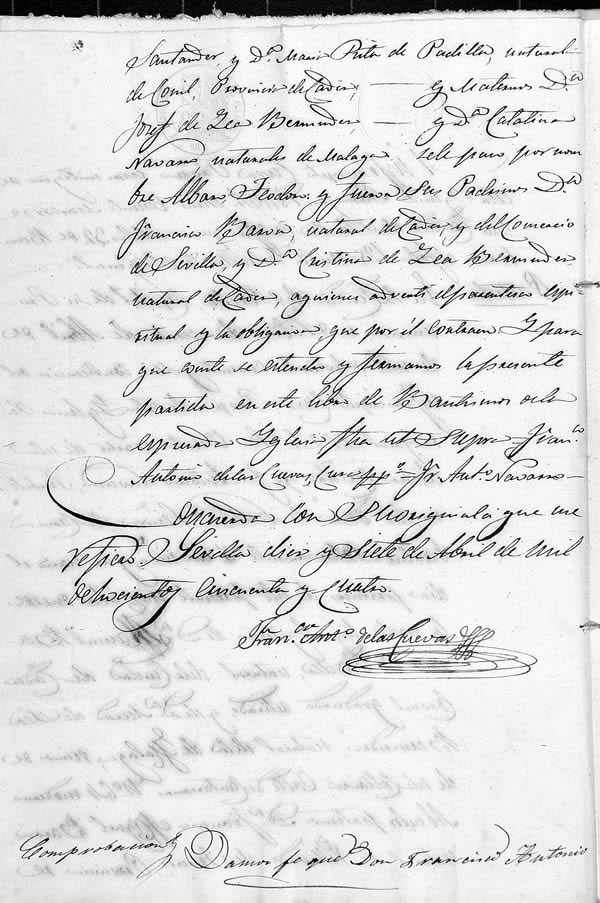 Santander, y D.ª Maria Rita de Padilla, natural
de Conil, Provincia de Cadiz; — y Maternos D.n
Josef de Zea Bermudez, — y D.ª Catalina
Navarro naturales de Malaga se le puso por nom
bre Alvaro, Teodoro; y fueron sus Padrinos D.n
Francisco natural de Cadiz, y del Comercio
de Sevilla, y D.ª Cristina de Zea Bermudez
natural de Cadiz, a quienes adverti el parentesco espi-
ritual y la obligacion que por él contraen Y para
que conste se estendio y firmamos la presente
partida en este libro de Bautismos de la
espresada Iglesia fha ut supra Fran.co
Antonio de las Cuevas, Cura = Fr. Ant.o Navarro —
Concuerda con su original á que me
refiero. Sevilla diez y siete de Abril de mil
ochocientos cincuenta y cuatro.
Fran.co Ant.o de las Cuevas
Comprobacion Damos fe que Don Francisco Antonio